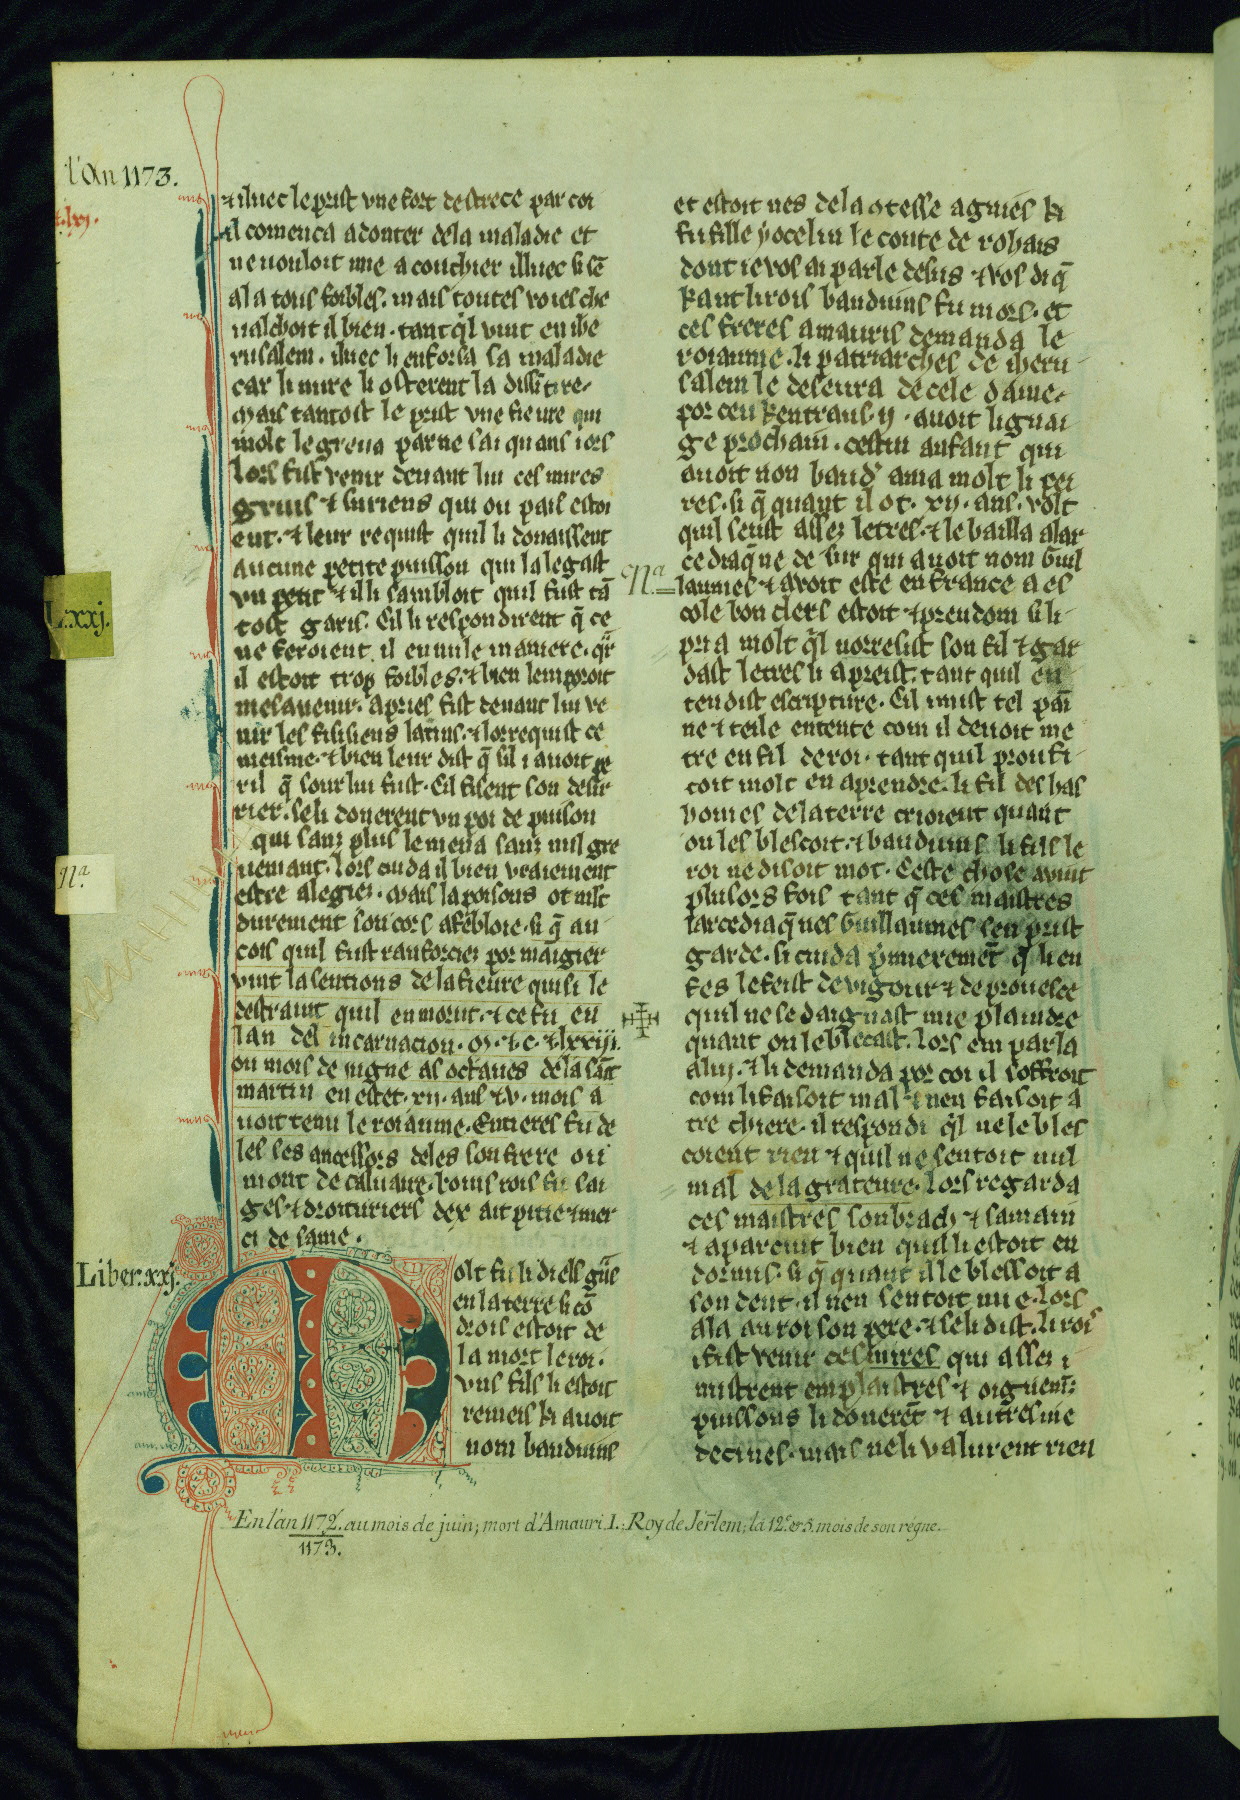 l'An 1173.
⁊ iluec le prist vne fort destrece par coi
il comenca adouter dela maladie et
ne uouloit mie acouchier illuec si sē
ala touz foibles. mais toutes voies che
ualchoit il bien. tant q̄l vint en ihe
rusalem. iluec li enforsa sa maladie
car li mire li osterent la
Mais tantost le prist vne fieure qui
molt le greua par ne sai quans iors
lors fist venir deuant lui ces mires
griuis ⁊ suriens qui ou pais estoi
ent. ⁊ leur requist quil li donaissent
aucune petite puison qui lalegast
vn petit ⁊ il li sambloit quil fust tā
tost garis. Cil li respondirent q̄ ce
ne feroient il en nule maniere. qr̄
il estoit trop foibles. ⁊ bien lem poroit
mesauenir. apries fist deuant lui ve
nir les fisisiens latins. ⁊ lor requist ce
meisme. ⁊ bien leur dist q̄ sil i auoit pe
ril q̄ sour lui fust. Cil fisent son desir
rier. se li donerent vn poi de puison
qui sanz plus le mena sanz nul gre
uemant. lors cuda il bien vraiement
estre alegiez. Mais la poisons ot mlt̄
durement son cors afebloie. si q̄ an
cois quil fust ranforciez por māgier
vint la sentions de la fieure qui si le
destraint quil en morut. ⁊ ce fu en
lan del incarnacion. M. ⁊ .c. ⁊ lxxiij.
ou mois de iugne as octaues de la sāt
martin en estet. xij. ans ⁊ .v. mois a
uoit tenu le roiaume. Enteres fu de
les ses ancessors deles son frere ou
mont de caluaire. bouis rois fu sai
ges. ⁊ droituriers dex ait pitie ⁊ mer
ci de same.
Liber. xxj.
Molt fu li diels gn̄s
en la terre si cō
drois estoit de
la mort le roi.
vns fils li estoit
remeis ki auoit
nom bauduins
et estoit nes dela otesse agnies ki
fu fille yocelin le conte de rohais
dont ie vos ai parle desus ⁊ vos di q̄
kant li rois bauduins fu mors. et
ces freres amauris demanda le
roiaume. li patriarches de iheru
salem le deseura de cele dame.
por ceu kentraus .ij. auoit lignai
ge prochain. cestui anfant qui
auoit non baud' ama molt li pei
res. si q̄ quant il ot. xij. ans. volt
quil seust assez letres. ⁊ le bailla alar
cediaq̄ne de sur qui auoit nom Guil
laumes ⁊ avoit este en france a es
cole bon clers estoit ⁊ preudom si li
pria molt q̄l norresist son fil ⁊ gar
dast letres li apreist. tant quil en
tendist escripture. Cil mist tel pai
ne ⁊ teile entente com il deuoit me
tre en fil de roi. tant quil proufi
toit molt en aprendre. li fil des bas
vomes de la terre crioient quant
on les blescoit. ⁊ bauduins li fils le
roi ne disoit mot. Ceste chose avint
plusors fois tant q̄ ces maistres
larcediaq̄nes Guillaumes sen prist
garde. si cuida p̄mieremēt q̄ li en
fes le feist de vigour ⁊ de prouesce
quil ne se daignast mie plaindre
quant on le blecast. lors em parla
a lui. ⁊ li demanda por coi il soffroit
com li faisoit mal ⁊ nen faisoit a
tre chiere. il respondi q̄l ne le bles
coient rien ⁊ quil ne sentoit nul
mal de la grateure. lors regarda
ces maistres son brach ⁊ sa main
⁊ aparcuit bien quil li estoit en
dormis. si q̄ quant il le blessoit a
son dent. il nen sentoit mie. lors
ala au roi son pere. ⁊ se li dist. li rois
i fist venir ces mires qui assez i
mistrent emplaistres ⁊ oignemēs
puissons li donerēt ⁊ autres me
decines. mais ne li valurent rien
L. xxj.
Nª.
Nª.
En l'an 1172. au mois de juin; mort d'Amauri I.: Roy de Jerl̄em; la 12.e & 5. mois de son regne.
1173.